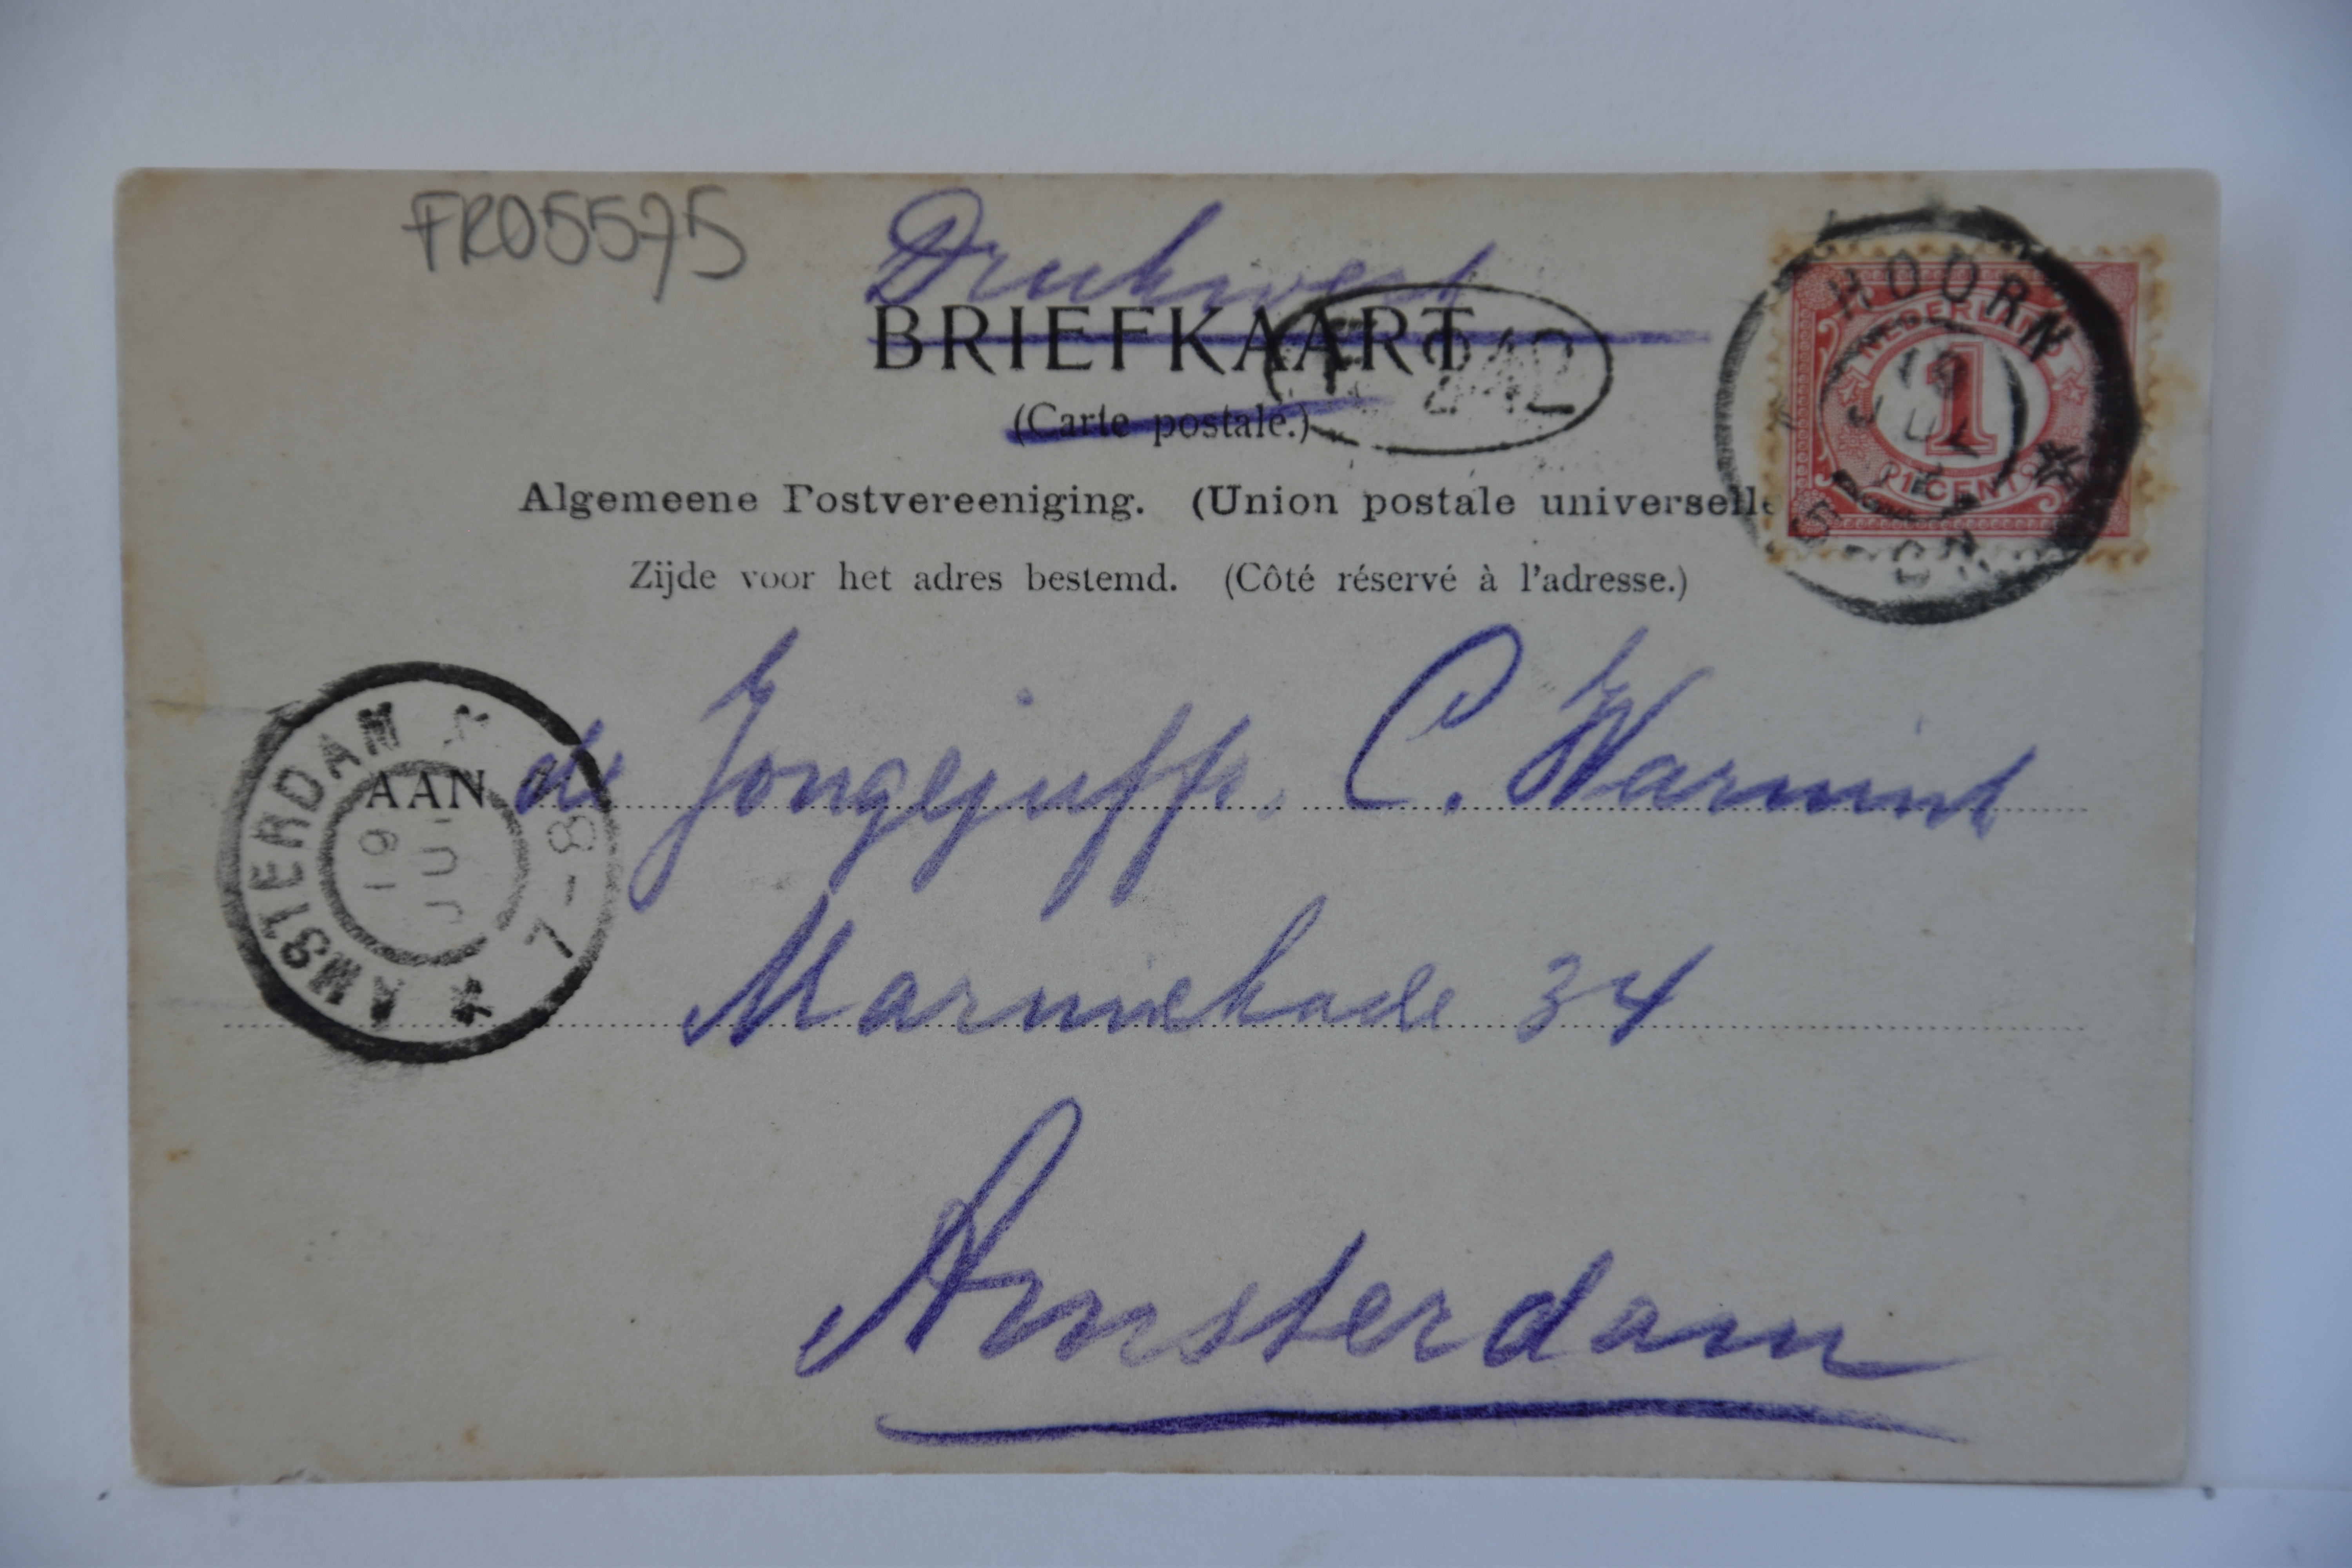 FR05575
Drukwerk
BRIEFKAART
(Carte postale.)
242
HOORN
19
JUL
5-6N
NEDERLAND
1
CENT
Algemeene Postvereeniging. (Union postale universelle
Zijde voor het adres bestemd. (Côté réservé à l'adresse.)
AMSTERDAM
19
JUL
7-8
AAN de Jongejuffr. C. Warmink
Marnixkade 34
Amsterdam